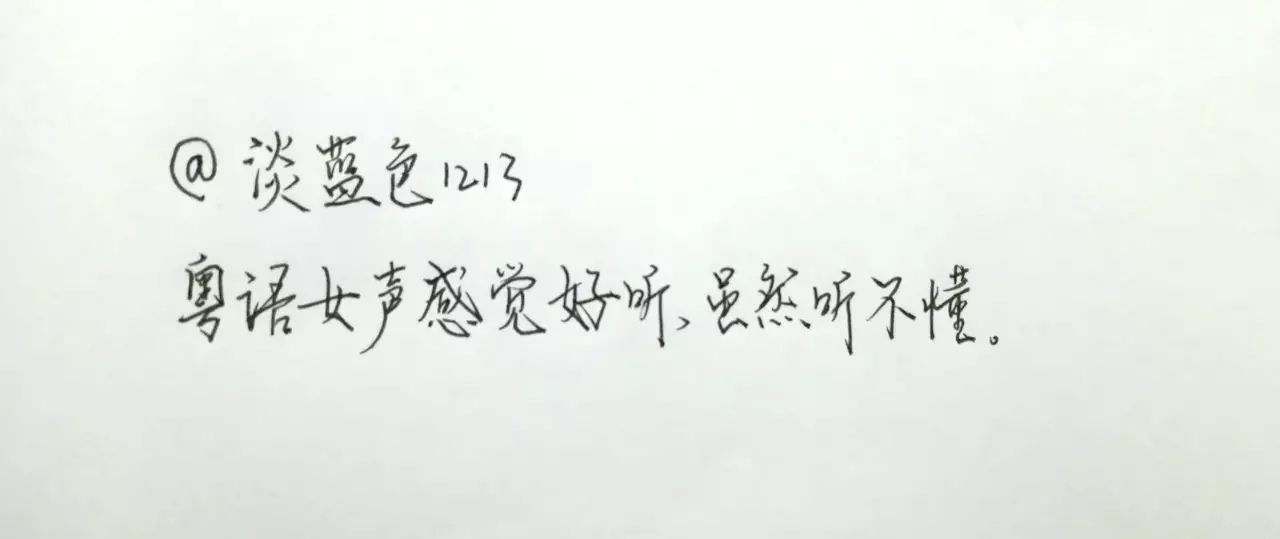 @淡蓝色1213
粤语女声感觉好听、虽然听不懂。